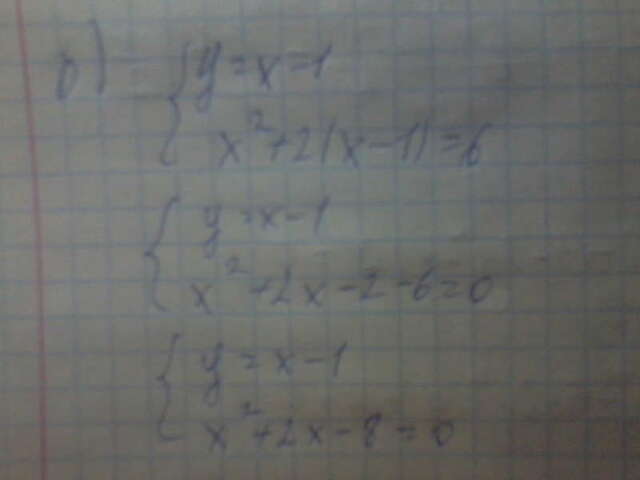 б) { y = x - 1
x² + 2(x - 1) = 6
{ y = x - 1
x² + 2x - 2 - 6 = 0
{ y = x - 1
x² + 2x - 8 = 0